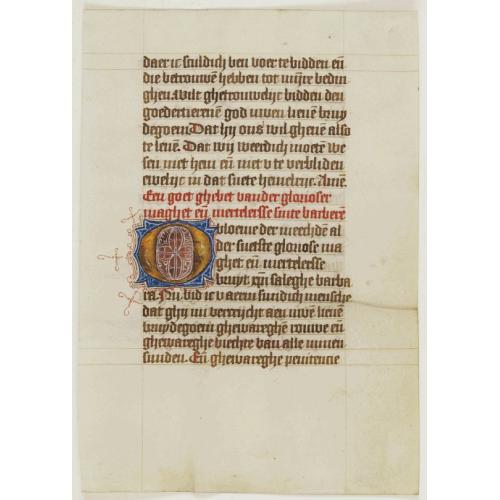 daer ic sculdich ben voer te bidden en̄
die betrouwē hebben tot mijre bedin
ghen. Wilt ghetrouwelijc bidden den
goedertierenē god uwen lieuē bruy
degoem. Dat hij ons wil gheuē also
te leuē. Dat wij weerdich moetē we
sen met hem en̄ met v te verbliden
ewelijc in dat suete hemelrijc. Amē.
Een goet ghebet vander glorioser
maghet en̄ mertelersse sinte barberē
O bloeme der meechdē al
der suefte gloriose ma
ghet en̄ mertelersse
bruyt xpī saleghe barba
ra. Nu bid ic v arem sundich mensche
dat ghij mi verrijcht aen uwē lieuē
bruydegoem ghewareghē rouwe en̄
ghewareghe biechte van alle minen
sunden. En̄ ghewareghe penitencie